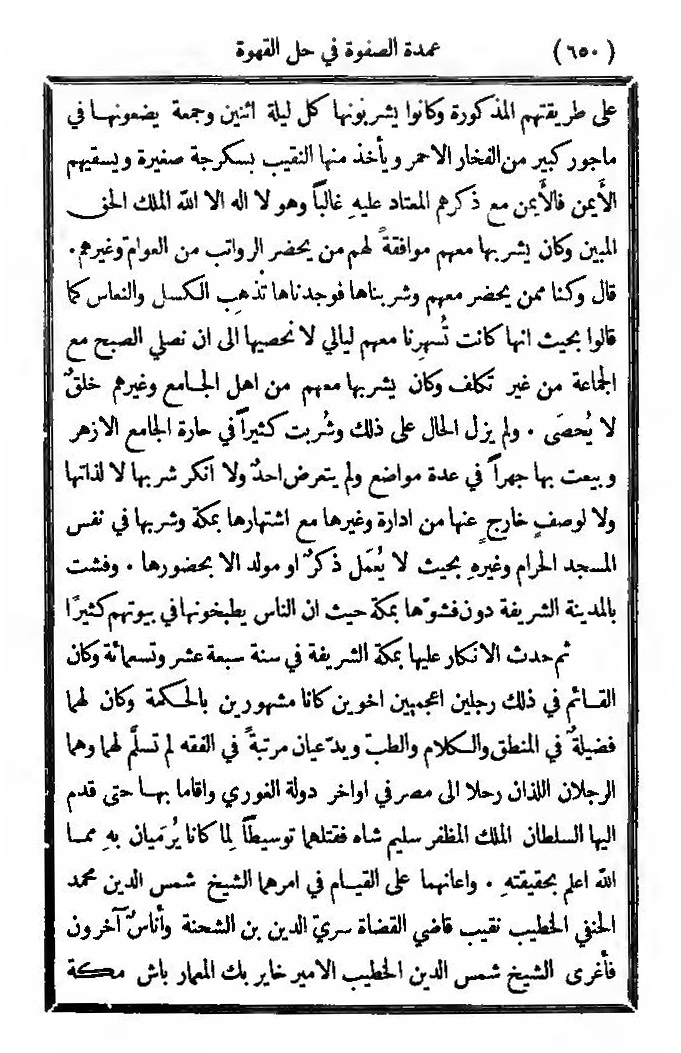 ( ٦٥٠ ) عمدة الصفوة في حل القهوة
على طريقتهم المذكورة وكانوا يشربونها كل ليلة اثنين وجمعة يضعونها في
ماجور كبير من الفخار الاحمر ويأخذ منها النقيب بسكرجة صغيرة ويسقيهم
الأَيمن فالأَيمن مع ذكرهم المعتاد عليهِ غالباً وهو لا اله الا الله الملك الحق
المبين وكان يشربها معهم موافقةً لهم من يحضر الرواتب من العوام وغيرهم .
قال وكنا ممن يحضر معهم وشربناها فوجدناها تذْهِب الكسل والنعاس كما
قالوا بحيث انها كانت تُسهِرنا معهم ليالي لا نحصيها الى ان نصلي الصبح مع
الجماعة من غير تكلف وكان يشربها معهم من اهل الجامع وغيرهم خلقٌ
لا يُحصَى . ولم يزل الحال على ذلك وشُربت كثيراً في حارة الجامع الازهر
وبيعت بها جهراً في عدة مواضع ولم يتعرض احدٌ ولا انكر شربها لا لذاتها
ولا لوصفٍ خارجٍ عنها من ادارة وغيرها مع اشتهارها بمكة وشربها في نفس
المسجد الحرام وغيرهِ بحيث لا يُعمَل ذكرٌ او مولد الا بحضورها . وفشت
بالمدينة الشريفة دون فشوّها بمكة حيث ان الناس يطبخونها في بيوتهم كثيرًا
ثم حدث الانكار عليها بمكة الشريفة في سنة سبعة عشر وتسعمائة وكان
القائم في ذلك رجلين اعجميين اخوين كانا مشهورين بالحكمة وكان لهما
فضيلةٌ في المنطق والكلام والطبّ ويدّعيان مرتبةً في الفقه لم تسلَّم لهما وهما
الرجلان اللذان رحلا الى مصر في اواخر دولة الغوري واقاما بها حتى قدم
اليها السلطان الملك المظفر سليم شاه فقتلهما توسيطاً لِما كانا يُرمَيان بهِ مما
الله اعلم بحقيقتهِ . واعانهما على القيام في امرهما الشيخ شمس الدين محمد
الحنفي الخطيب نقيب قاضي القضاة سريّ الدين بن الشحنة وأناسٌ آخرون
فأَغرى الشيخ شمس الدين الخطيب الامير خاير بك المعمار باش مكة